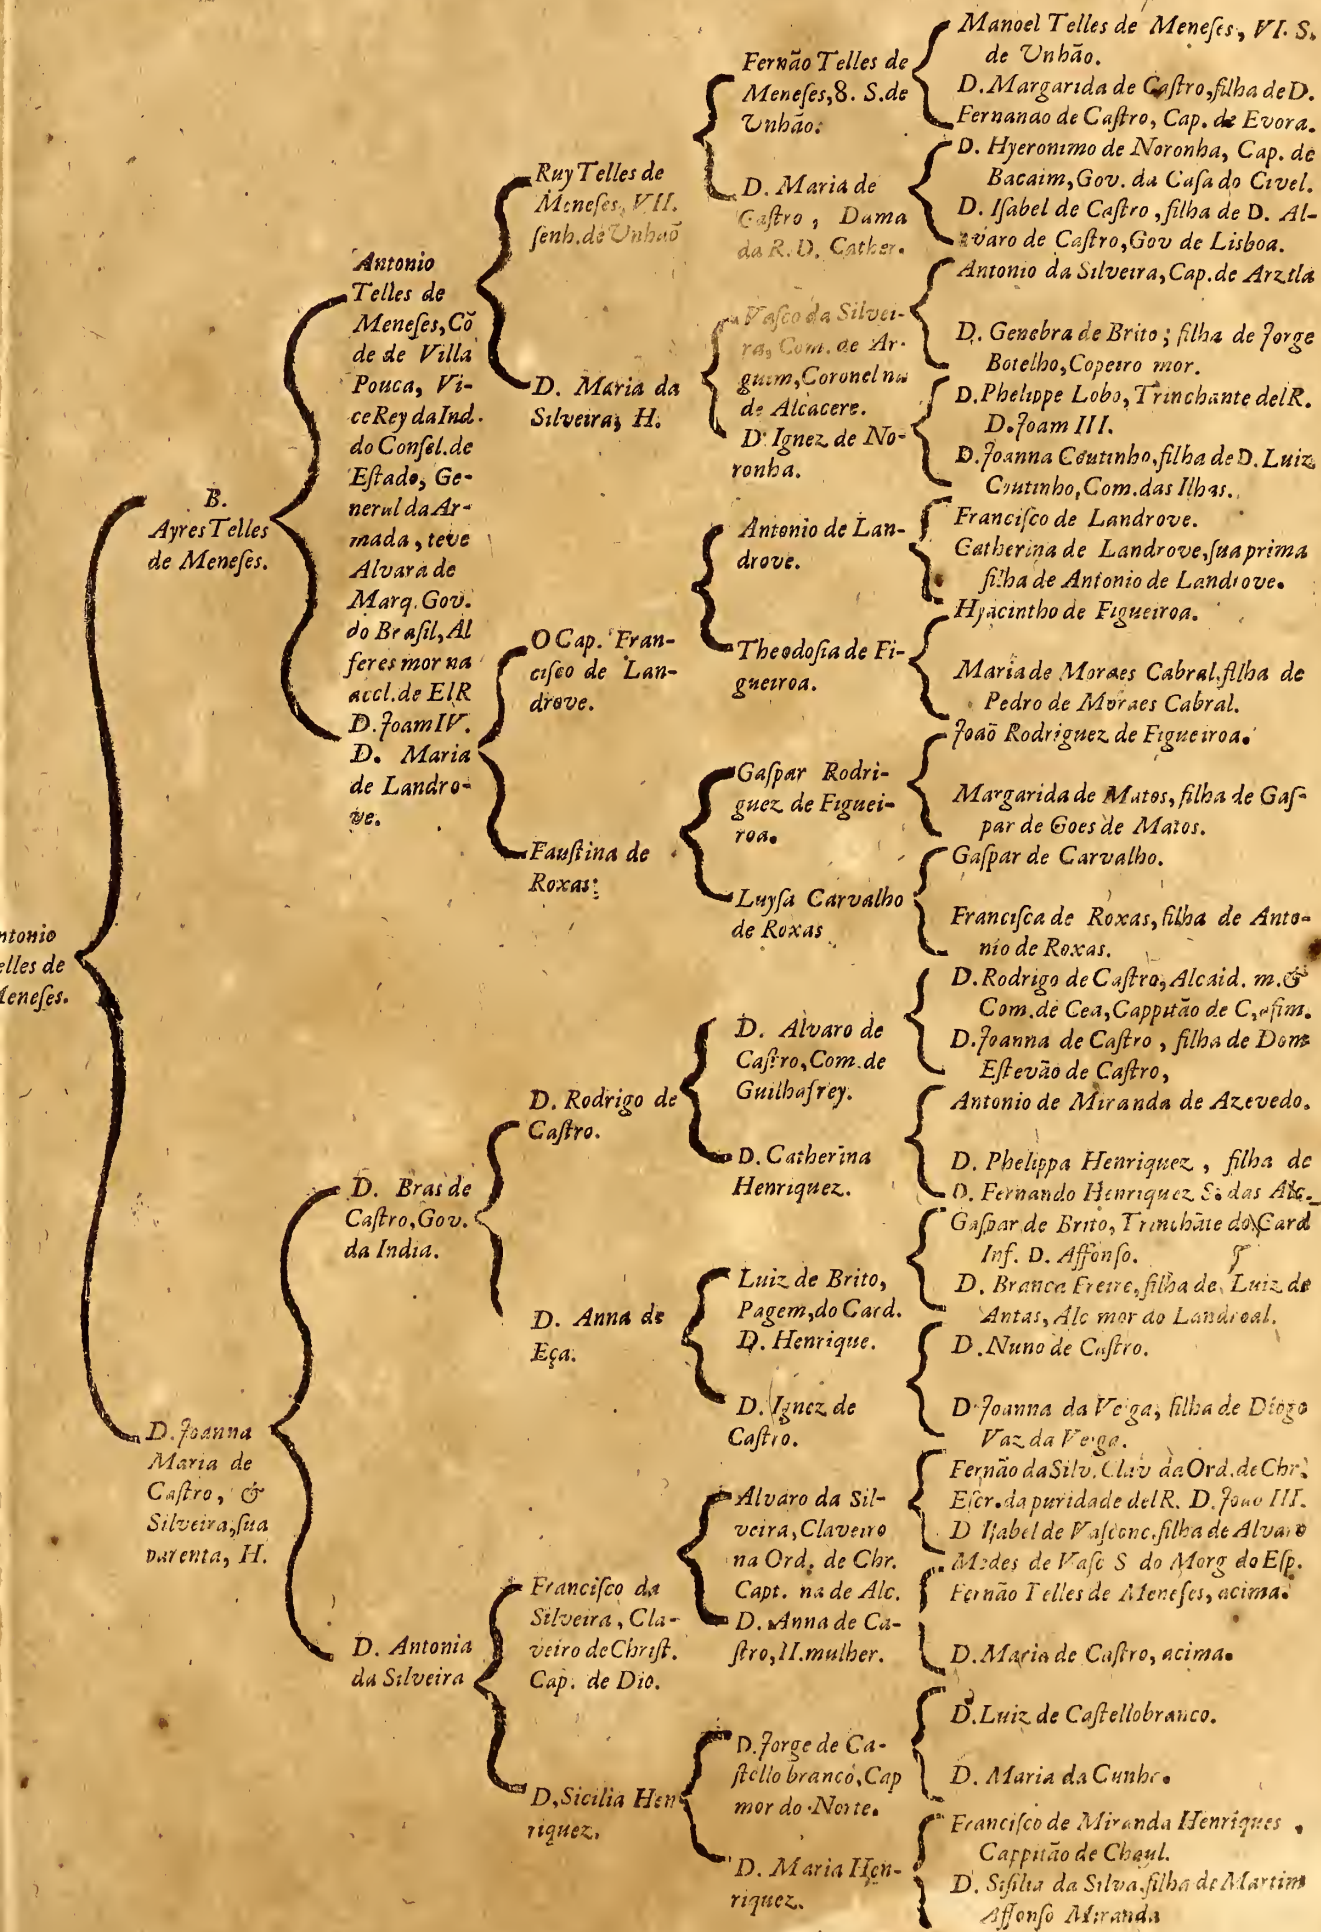 ntonio
elles de
Meneſes.
B.
Ayres Telles
de Meneſes.
D. Joanna
Maria de
Caſtro, &
Silveira, ſua
parenta, H.
Antonio
Telles de
Meneſes, Cõ
de de Villa
Pouca, Vi-
ceRey da Ind.
do Conſel. de
Eſtado, Ge-
neral da Ar-
mada, teve
Alvara de
Marq. Gov.
do Braſil, Al
feres mor na
accl. de ElR
D. Joam IV.
D. Maria
de Landro-
ve.
D. Bras de
Caſtro, Gov.
da India.
D. Antonia
da Silveira
Ruy Telles de
Meneſes, VII.
ſenh. de Unhaõ
D. Maria da
Silveira, H.
O Cap. Fran-
ciſco de Lan-
drove.
Fauſtina de
Roxas.
D. Rodrigo de
Caſtro.
D. Anna de
Eça.
Franciſco da
Silveira, Cla-
veiro de Chriſt.
Cap. de Dio.
D. Sicilia Hen
riquez.
Fernão Telles de
Meneſes, 8. S. de
Unhão.
D. Maria de
Caſtro, Dama
da R. D. Cather.
Vaſco da Silvei-
ra, Com. de Ar-
guim, Coronel na
de Alcacere.
D. Ignez de No-
ronha.
Antonio de Lan-
drove.
Theodoſia de Fi-
gueiroa.
Gaſpar Rodri-
guez de Figuei-
roa.
Luyſa Carvalho
de Roxas
D. Alvaro de
Caſtro, Com. de
Guilhafrey.
D. Catherina
Henriquez.
Luiz de Brito,
Pagem, do Card.
D. Henrique.
D. Ignez de
Caſtro.
Alvaro da Sil-
veira, Claveiro
na Ord. de Chr.
Capt. na de Alc.
D. Anna de Ca-
ſtro, II. mulher.
D. Jorge de Ca-
ſtello branco, Cap
mor do Norte.
D. Maria Hen-
riquez.
Manoel Telles de Meneſes, VI. S.
de Unhão.
D. Margarida de Caſtro, filha de D.
Fernando de Caſtro, Cap. de Evora.
D. Hyeronimo de Noronha, Cap. de
Bacaim, Gov. da Caſa do Civel.
D. Iſabel de Caſtro, filha de D. Al-
varo de Caſtro, Gov de Lisboa.
Antonio da Silveira, Cap. de Arzila
D. Genebra de Brito; filha de Jorge
Botelho, Copeiro mor.
D. Phelippe Lobo, Trinchante delR.
D. Joam III.
D. Joanna Coutinho, filha de D. Luiz
Coutinho, Com. das Ilhas.
Franciſco de Landrove.
Catherina de Landrove, ſua prima
filha de Antonio de Landrove.
Hyacintho de Figueiroa.
Maria de Moraes Cabral, filha de
Pedro de Moraes Cabral.
Joaõ Rodriguez de Figueiroa.
Margarida de Matos, filha de Gaſ-
par de Goes de Matos.
Gaſpar de Carvalho.
Franciſca de Roxas, filha de Anto-
nio de Roxas.
D. Rodrigo de Caſtro, Alcaid. m. &
Com. de Cea, Cappitão de Cafim.
D. Joanna de Caſtro, filha de Dom
Eſtevão de Caſtro,
Antonio de Miranda de Azevedo.
D. Phelippa Henriquez, filha de
D. Fernando Henriquez S. das Alc.
Gaſpar de Brito, Trinchãte do Card
Inf. D. Affonſo.
D. Branca Freire, filha de Luiz de
Antas, Alc mor do Landroal.
D. Nuno de Caſtro.
D. Joanna da Veiga, filha de Diogo
Vaz da Veiga.
Fernão da Silv. Clav da Ord. de Chr.
Eſcr. da puridade delR. D. Joao III.
D Iſabel de Vaſconc. filha de Alvaro
Medes de Vaſc S do Morg do Eſp.
Fernão Telles de Meneſes, acima.
D. Maria de Caſtro, acima.
D. Luiz de Caſtellobranco.
D. Maria da Cunha.
Franciſco de Miranda Henriques.
Cappitão de Chaul.
D. Siſilia da Silva, filha de Martim
Affonſo Miranda